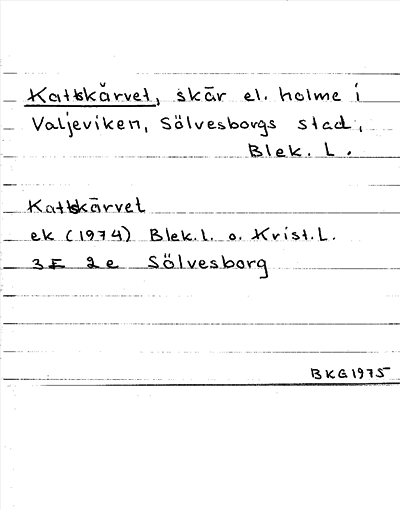 Kattskärvet, skär el. holme i
Valjeviken, Sölvesborgs stad,
Blek. L.
Kattskärvet
ek (1974) Blek.l. o. Krist.L.
3E 2e Sölvesborg
BKG1975